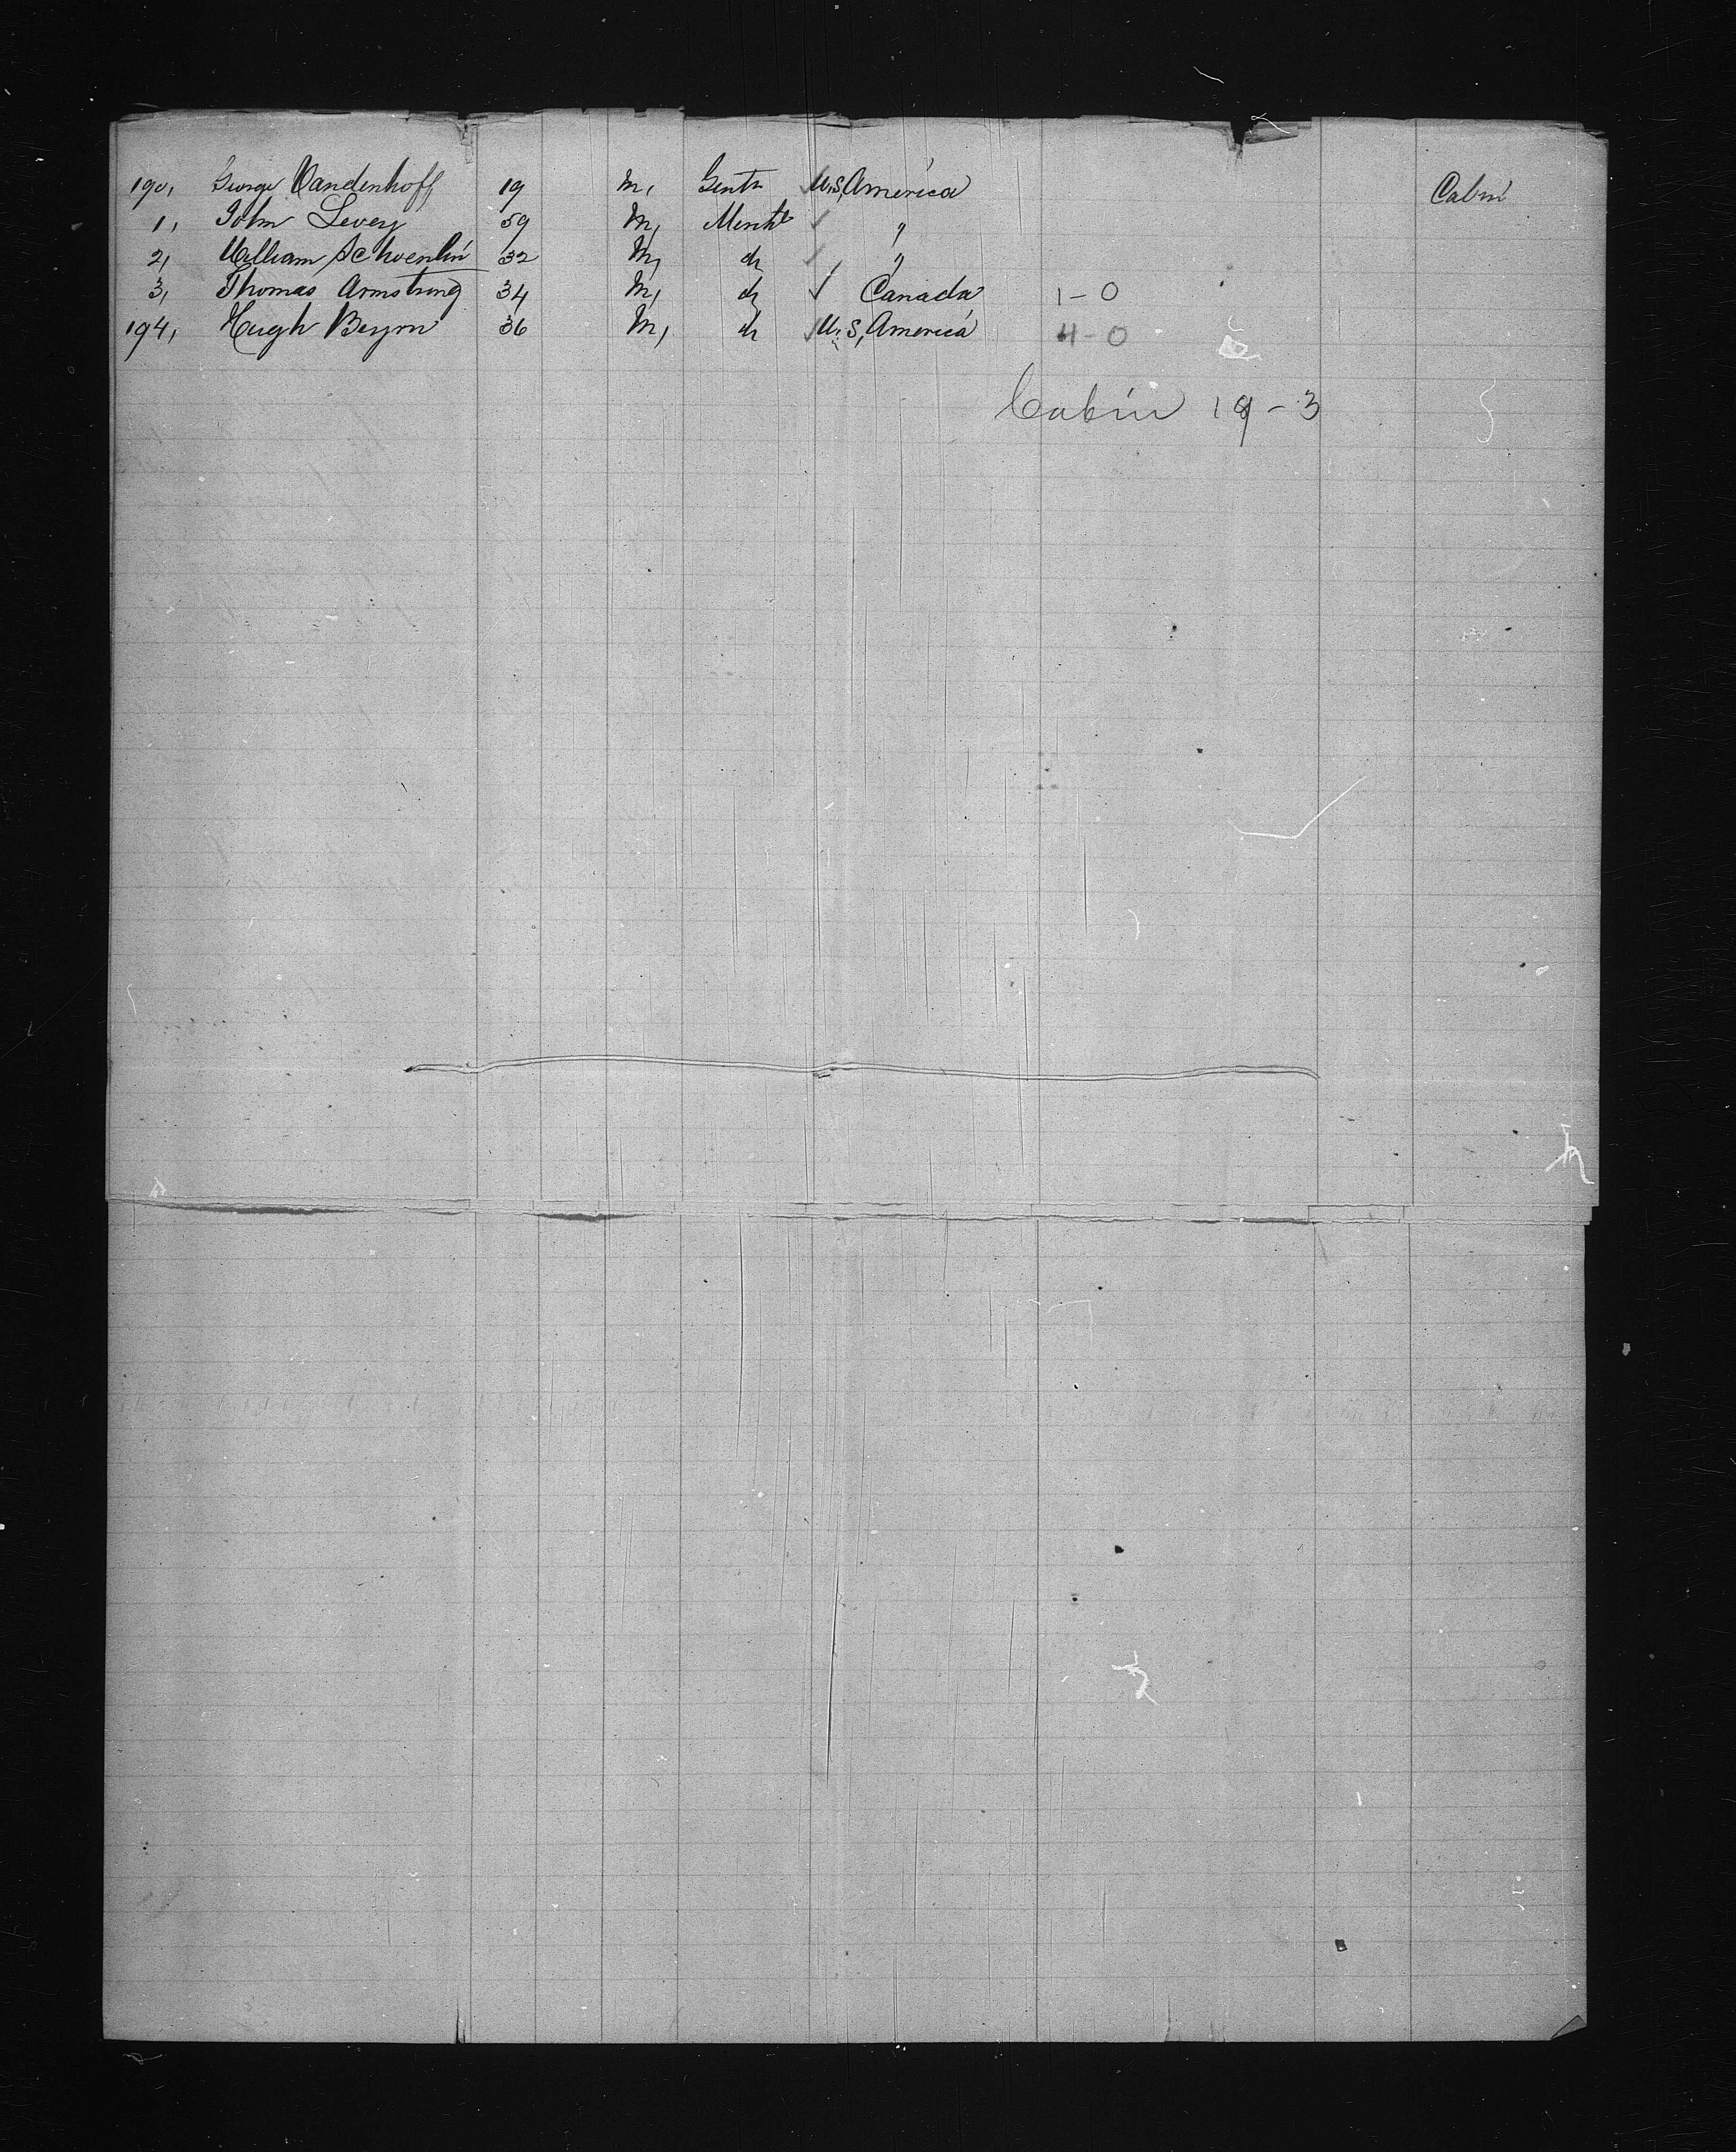 190, George Vandenhoff 19 M, Gentn U.S, America Cabin
1, John Levey 59 M, Mercht "
2, William Schoenlin 32 M, do "
3, Thomas Armstrong 34 M, do Canada 1-0
194, Hugh Beyrn 36 M, do U.S, America 4-0
Cabin 19-3